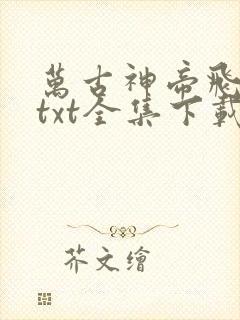 萬古神帝飛
txt全集下載
芥文繪